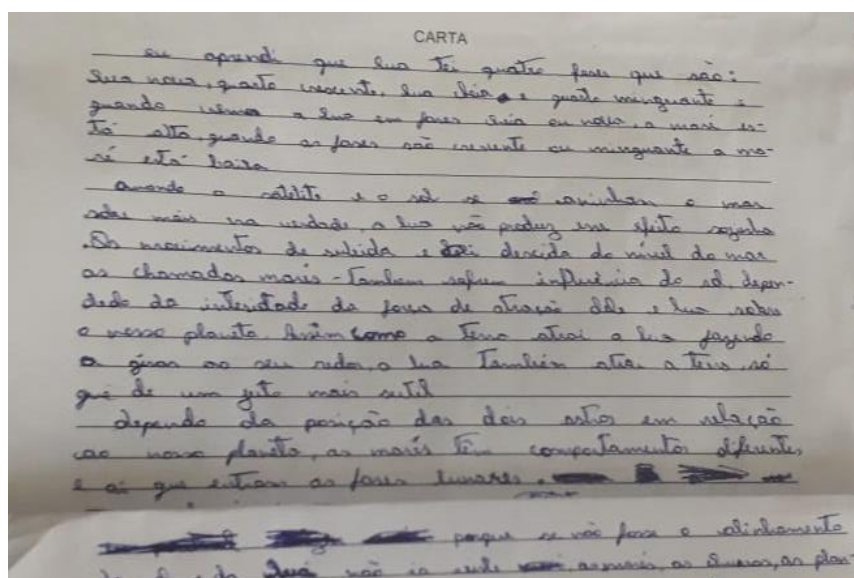 CARTA
eu aprendi que lua tei quatro fases que são:
Lua nova, quarto crescente, lua cheia e quarto minguante e
quando a lua em fases cheia ou nova, a maré es-
tá alta, quando as fases são crescente ou minguante a ma-
ré está baixa
Quando o satélite e o sol se aninham o mar
sobe mais na verdade, a lua não produz esse efeito sozinha
. Os movimentos de subida e descida do nível do mar
as chamadas marés - Também sofrem influência do sol, depen-
dedo da intensidade da força de atração dele e lua sobre
o nosso planeta. Assim como a Terra atrai a lua fazendo
a girar ao seu redor, a lua Também atrai a Terra, só
que de um jeito mais sutil
dependo da posição dos dois astros em relação
ao nosso planeta, as marés têm comportamentos diferentes
e ai que entram as fases lunares.
porque se não fosse o alinhamento
não ia as marés, as